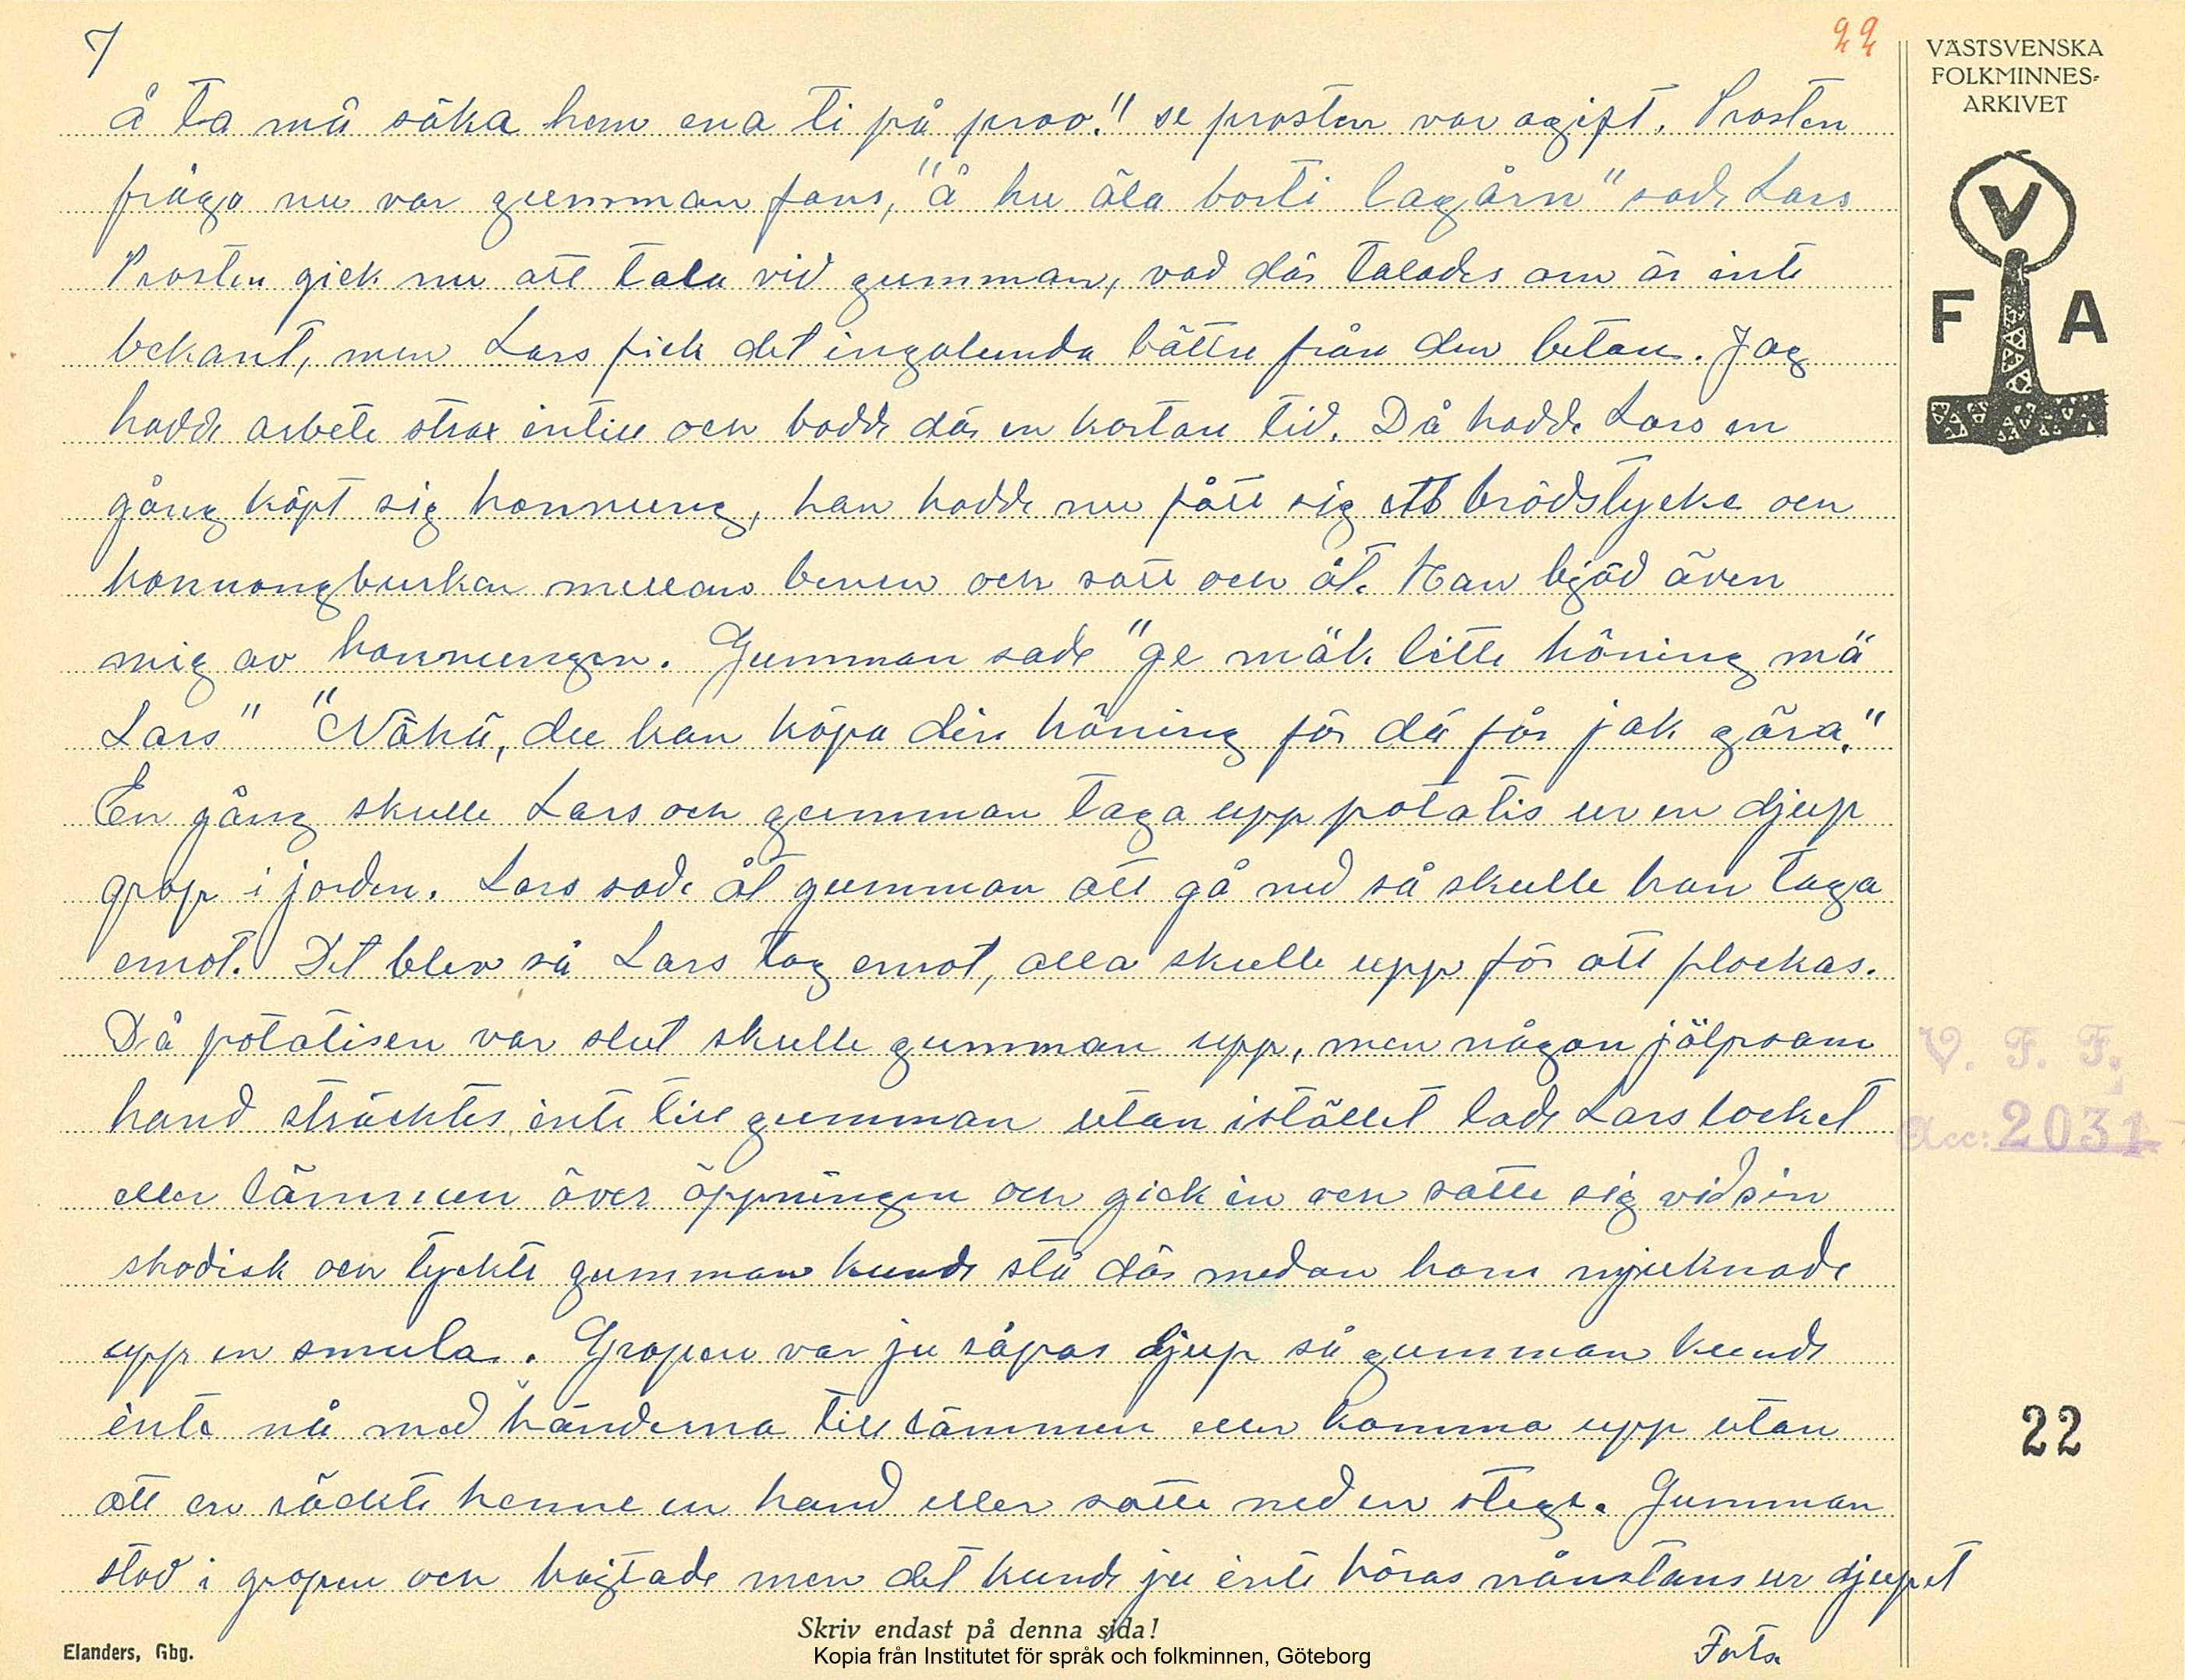 7
22
VÄSTSVENSKA
FOLKMINNES-
ARKIVET
V
F A
å ta må söka hem ena ti på proo!" se prosten var ogift. Prosten
fråga nu var gumman fans, "å hu äla borti lagårn" sade Lars
Prosten gick nu att tala vid gumman, vad där talades om är inte
bekant, men Lars fick det ingalunda bättre från den betan. Jag
hadde arbete strax intill och bodde där en kortare tid. Då hadde Lars en
gång köpt sig honnung, han hadde nu fått sig ett brödstycke och
honnongburken mellan benen och satt och åt. Han bjöd även
mig av honnungen. Gumman sade "ge mäk litte höning mä
Lars" "Nähä, du kan köpa din höning för dä får jak göra."
En gång skulle Lars och gumman taga upp potatis ur en djup
grop i jorden. Lars sade åt gumman att gå ned så skulle han taga
emot. Det blev så Lars tog emot, alla skulle upp för att plockas.
Då potatisen var slut skulle gumman upp, men någon jälpsam
hand sträcktes inte till gumman utan istället lade Lars locket
eller lämmen över öppningen och gick in och satte sig vid sin
skodisk och tyckte gumman kunde stå där medan hon mjuknade
upp en smula. Gropen var ju såpas djup så gumman kunde
inte nå med händerna till lämmen eller komma upp utan
att en räckte henne en hand eller satte ned en stege. Gumman
stod i gropen och hojtade men det kunde ju inte höras nånstans ur djupet
Forts
V. F. F.
Acc: 2031
22
Skriv endast på denna sida!
Elanders, Gbg.
Kopia från Institutet för språk och folkminnen, Göteborg